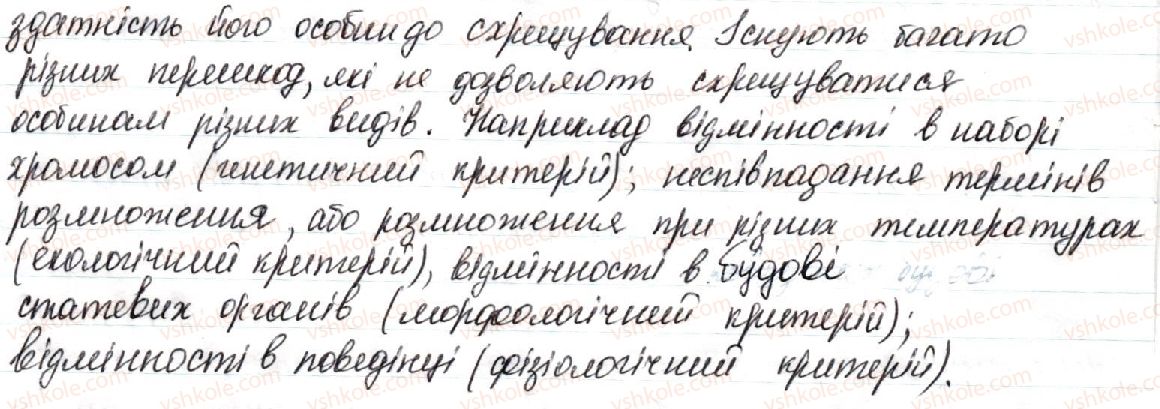 здатність його особин до схрещування. Існують багато
різних перешкод, які не дозволяють схрещуватися
особинам різних видів. Наприклад відмінності в наборі
хромосом (генетичний критерій); неспівпадання термінів
розмноження, або розмноження при різних температурах
(екологічний критерій), відмінності в будові
статевих органів (морфологічний критерій);
відмінності в поведінці (фізіологічний критерій).